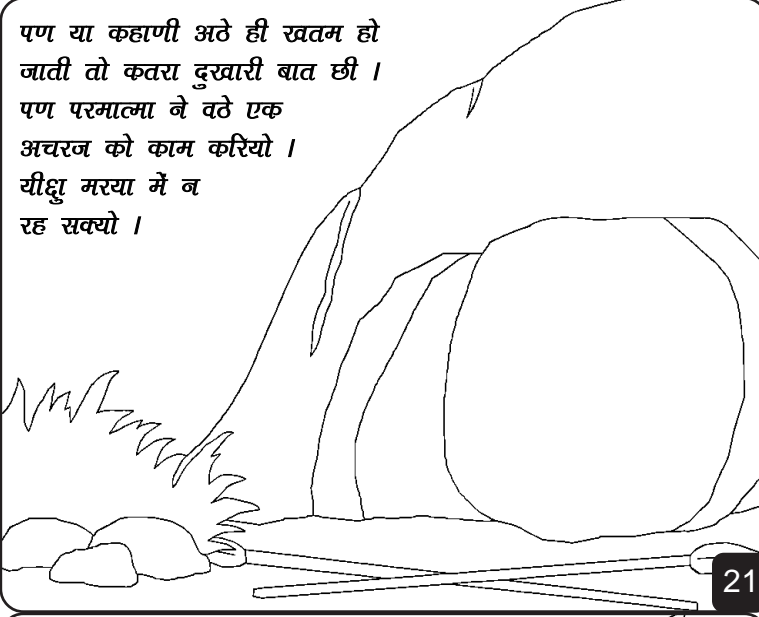 पण या कहाणी अठे ही खतम हो
जाती तो कतरा दुखारी बात छी ।
पण परमात्मा ने वठे एक
अचरज को काम करियो ।
यीशु मरया में न
रह सक्यो ।
21